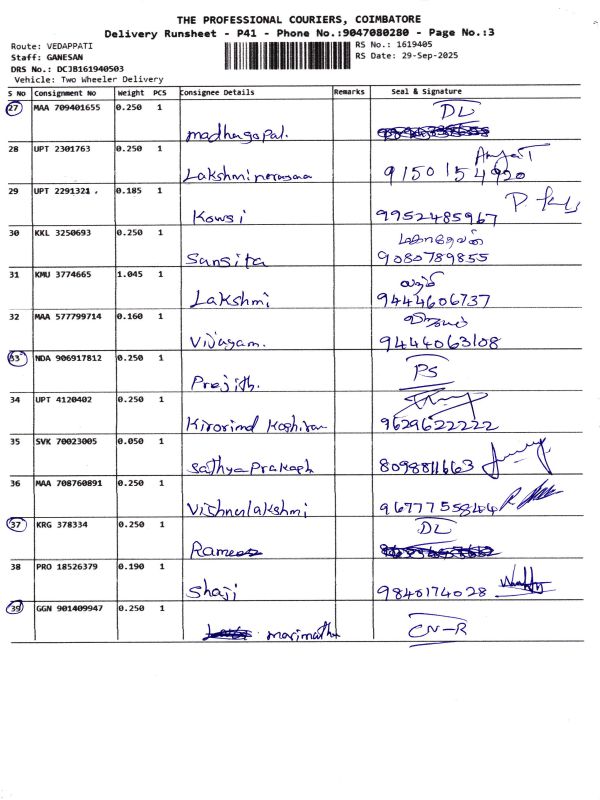 THE PROFESSIONAL COURIERS, COIMBATORE
Delivery Runsheet - P41 - Phone No.:9047080280 - Page No.:3
Route: VEDAPPATI
RS No.: 1619405
Staff: GANESAN
RS Date: 29-Sep-2025
DRS No.: DCJB161940503
Vehicle: Two Wheeler Delivery
S No Consignment No Weight PCS Consignee Details Remarks Seal & Signature
27 MAA 709401655 0.250 1 DL
madhangopal.
28 UPT 2301763 0.250 1
Lakshminarasaa 9150154920
29 UPT 2291321 0.185 1
Kowsi 9952485967
30 KKL 3250693 0.250 1
Sansita 9080789855
31 KMU 3774665 1.045 1
Lakshmi 9444606737
32 MAA 577799714 0.160 1
Vijayam. 9444063108
33 NDA 906917812 0.250 1 PS
Prejith.
34 UPT 4120402 0.250 1
9629622222
35 SVK 70023005 0.050 1
Sathya Prakash 8098811663
36 MAA 708760891 0.250 1
Vishnulakshmi 9677755844
37 KRG 378334 0.250 1 DL
Rameez
38 PRO 18526379 0.190 1
Shaji 9840174028
39 GGN 901409947 0.250 1
marimuthu CN-R